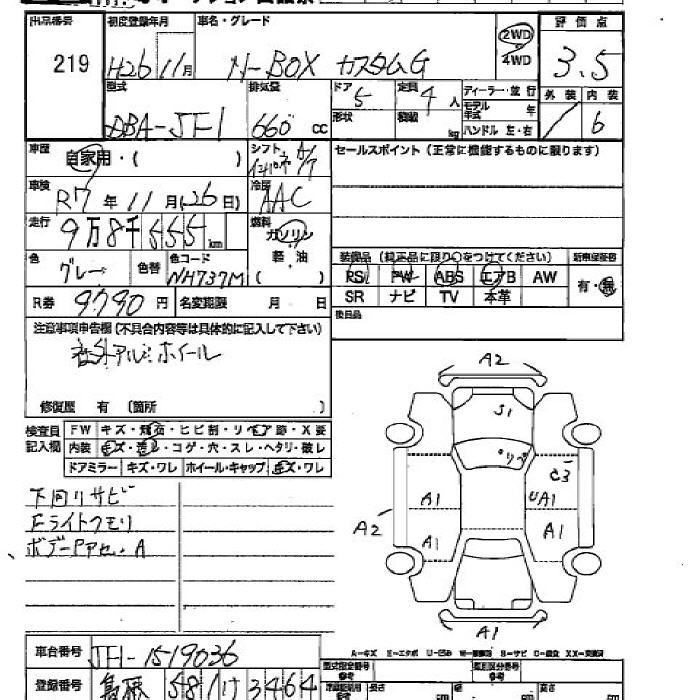 出品番号 初度登録年月 車名・グレード 2WD 評価点
219 H26 11月 N-BOX カスタムG 4WD 3.5
型式 排気量 ドア 定員 ディーラー・並行 外装 内装
DBA-JF1 660 cc 5 4人 モデル年式 年 6
形状 積載 kg ハンドル 左・右
車歴 自家用・( ) シフト セールスポイント（正常に機能するものに限ります）
車検 R7年11月(26日) 冷房 AAC
走行 9万8千555km 燃料 ガソリン
軽油
色 グレー 色替 色コード NH737M ( ) 装備品（純正品に限り○をつけてください） 新車保証書
PS PW ABS エアB AW 有・無
SR ナビ TV 本革
R券 9790円 名変期限 月 日 後日品
注意事項申告欄(不具合内容等は具体的に記入して下さい)
社外アルミホイール
修復歴 有 （箇所 ）
検査員 FW キズ・飛石・ヒビ割・リペア跡・X要
記入欄 内装 キズ・汚レ・コゲ・穴・スレ・ヘタリ・破レ
ドアミラー キズ・ワレ ホイール・キャップ キズ・ワレ
下回リサビ
Fライトクモリ
ボデーPアセ・A
A2
S1
リペ
C3
A1 UA1
A2
A1 A1
A1
A-キズ E-エクボ U-凹み S-サビ C-腐食 XX-交換済
車台番号 JF1-1519036
型式指定番号 参考 類別区分番号 参考
登録番号 581 け 3464
長さ cm 幅 cm 高さ cm